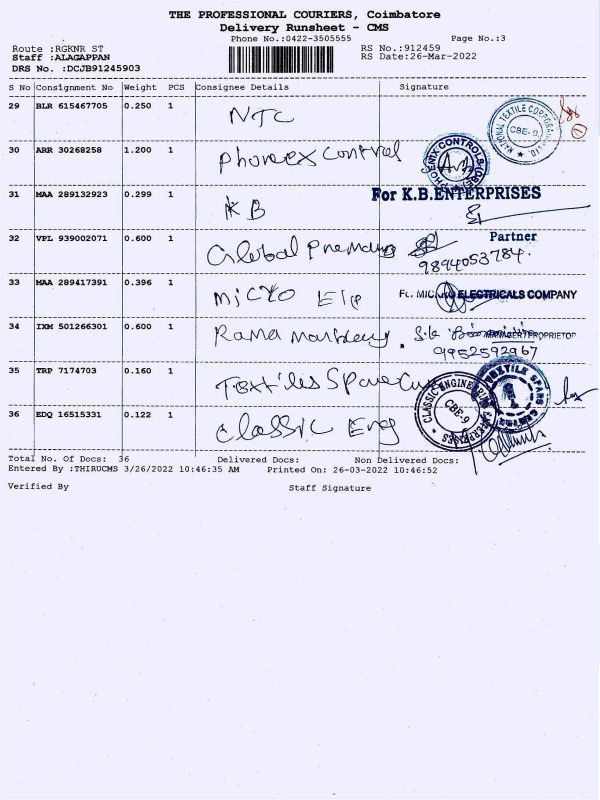 THE PROFESSIONAL COURIERS, Coimbatore
Delivery Runsheet - CMS
Phone No.:0422-3505555 Page No.:3
Route :RGKNR ST RS No.:912459
Staff :ALAGAPPAN RS Date:26-Mar-2022
DRS No. :DCJB91245903
S No Consignment No Weight PCS Consignee Details Signature
29 BLR 615467705 0.250 1 NTC
NATIONAL TEXTILE CORPORATION LTD. CBE-9.
30 ARR 30268258 1.200 1 Phoneex Control
PHOENIX CONTROLS
31 MAA 289132923 0.299 1 KB
For K.B.ENTERPRISES
Partner
32 VPL 939002071 0.600 1 Global
9894053784.
33 MAA 289417391 0.396 1 Micro Ele
MICRO ELECTRICALS COMPANY
MANAGER/PROPRIETOR
34 IXM 501266301 0.600 1 Rama
9952592967
35 TRP 7174703 0.160 1 Textiles Spare
TEXTILE SPARES
36 EDQ 16515331 0.122 1 Classic Eng
CLASSIC ENGINEERING ENTERPRISES CBE-9
Total No. Of Docs: 36 Delivered Docs: Non Delivered Docs:
Entered By :THIRUCMS 3/26/2022 10:46:35 AM Printed On: 26-03-2022 10:46:52
Verified By Staff Signature